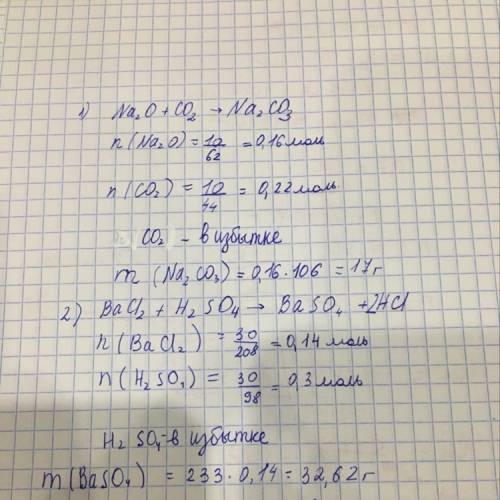 1) Na₂O + CO₂ → Na₂CO₃
n (Na₂O) = 10/62 = 0,16 моль
n (CO₂) = 10/44 = 0,22 моль
CO₂ - в избытке
m (Na₂CO₃) = 0,16 · 106 = 17 г
2) BaCl₂ + H₂SO₄ → BaSO₄ + 2HCl
n (BaCl₂) = 30/208 = 0,14 моль
n (H₂SO₄) = 30/98 = 0,3 моль
H₂SO₄ - в избытке
m (BaSO₄) = 233 · 0,14 = 32,62 г